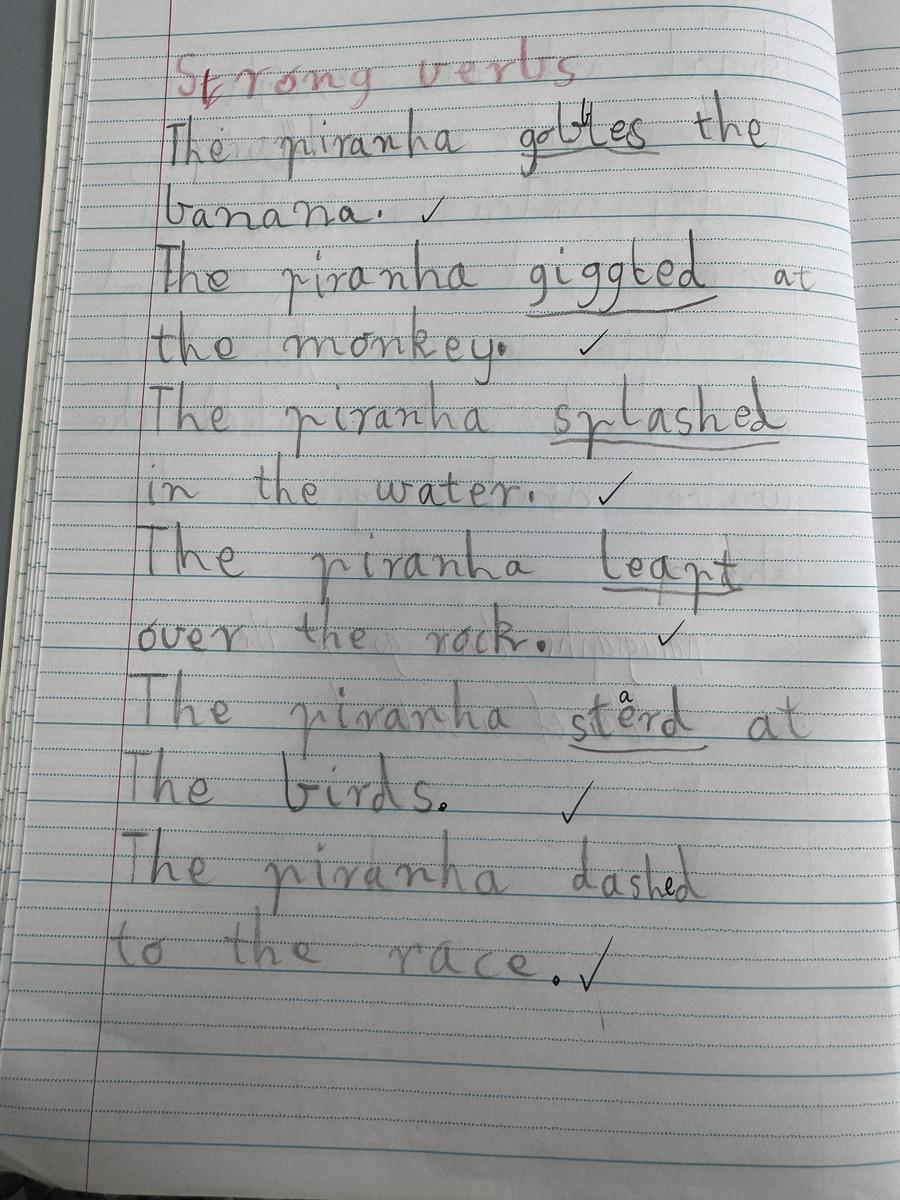 Strong verbs
The piranha gobbles the
banana. ✓
The piranha giggled at
the monkey. ✓
The piranha splashed
in the water. ✓
The piranha leapt
over the rock. ✓
The piranha staerd at
The birds. ✓
The piranha dashed
to the race. ✓